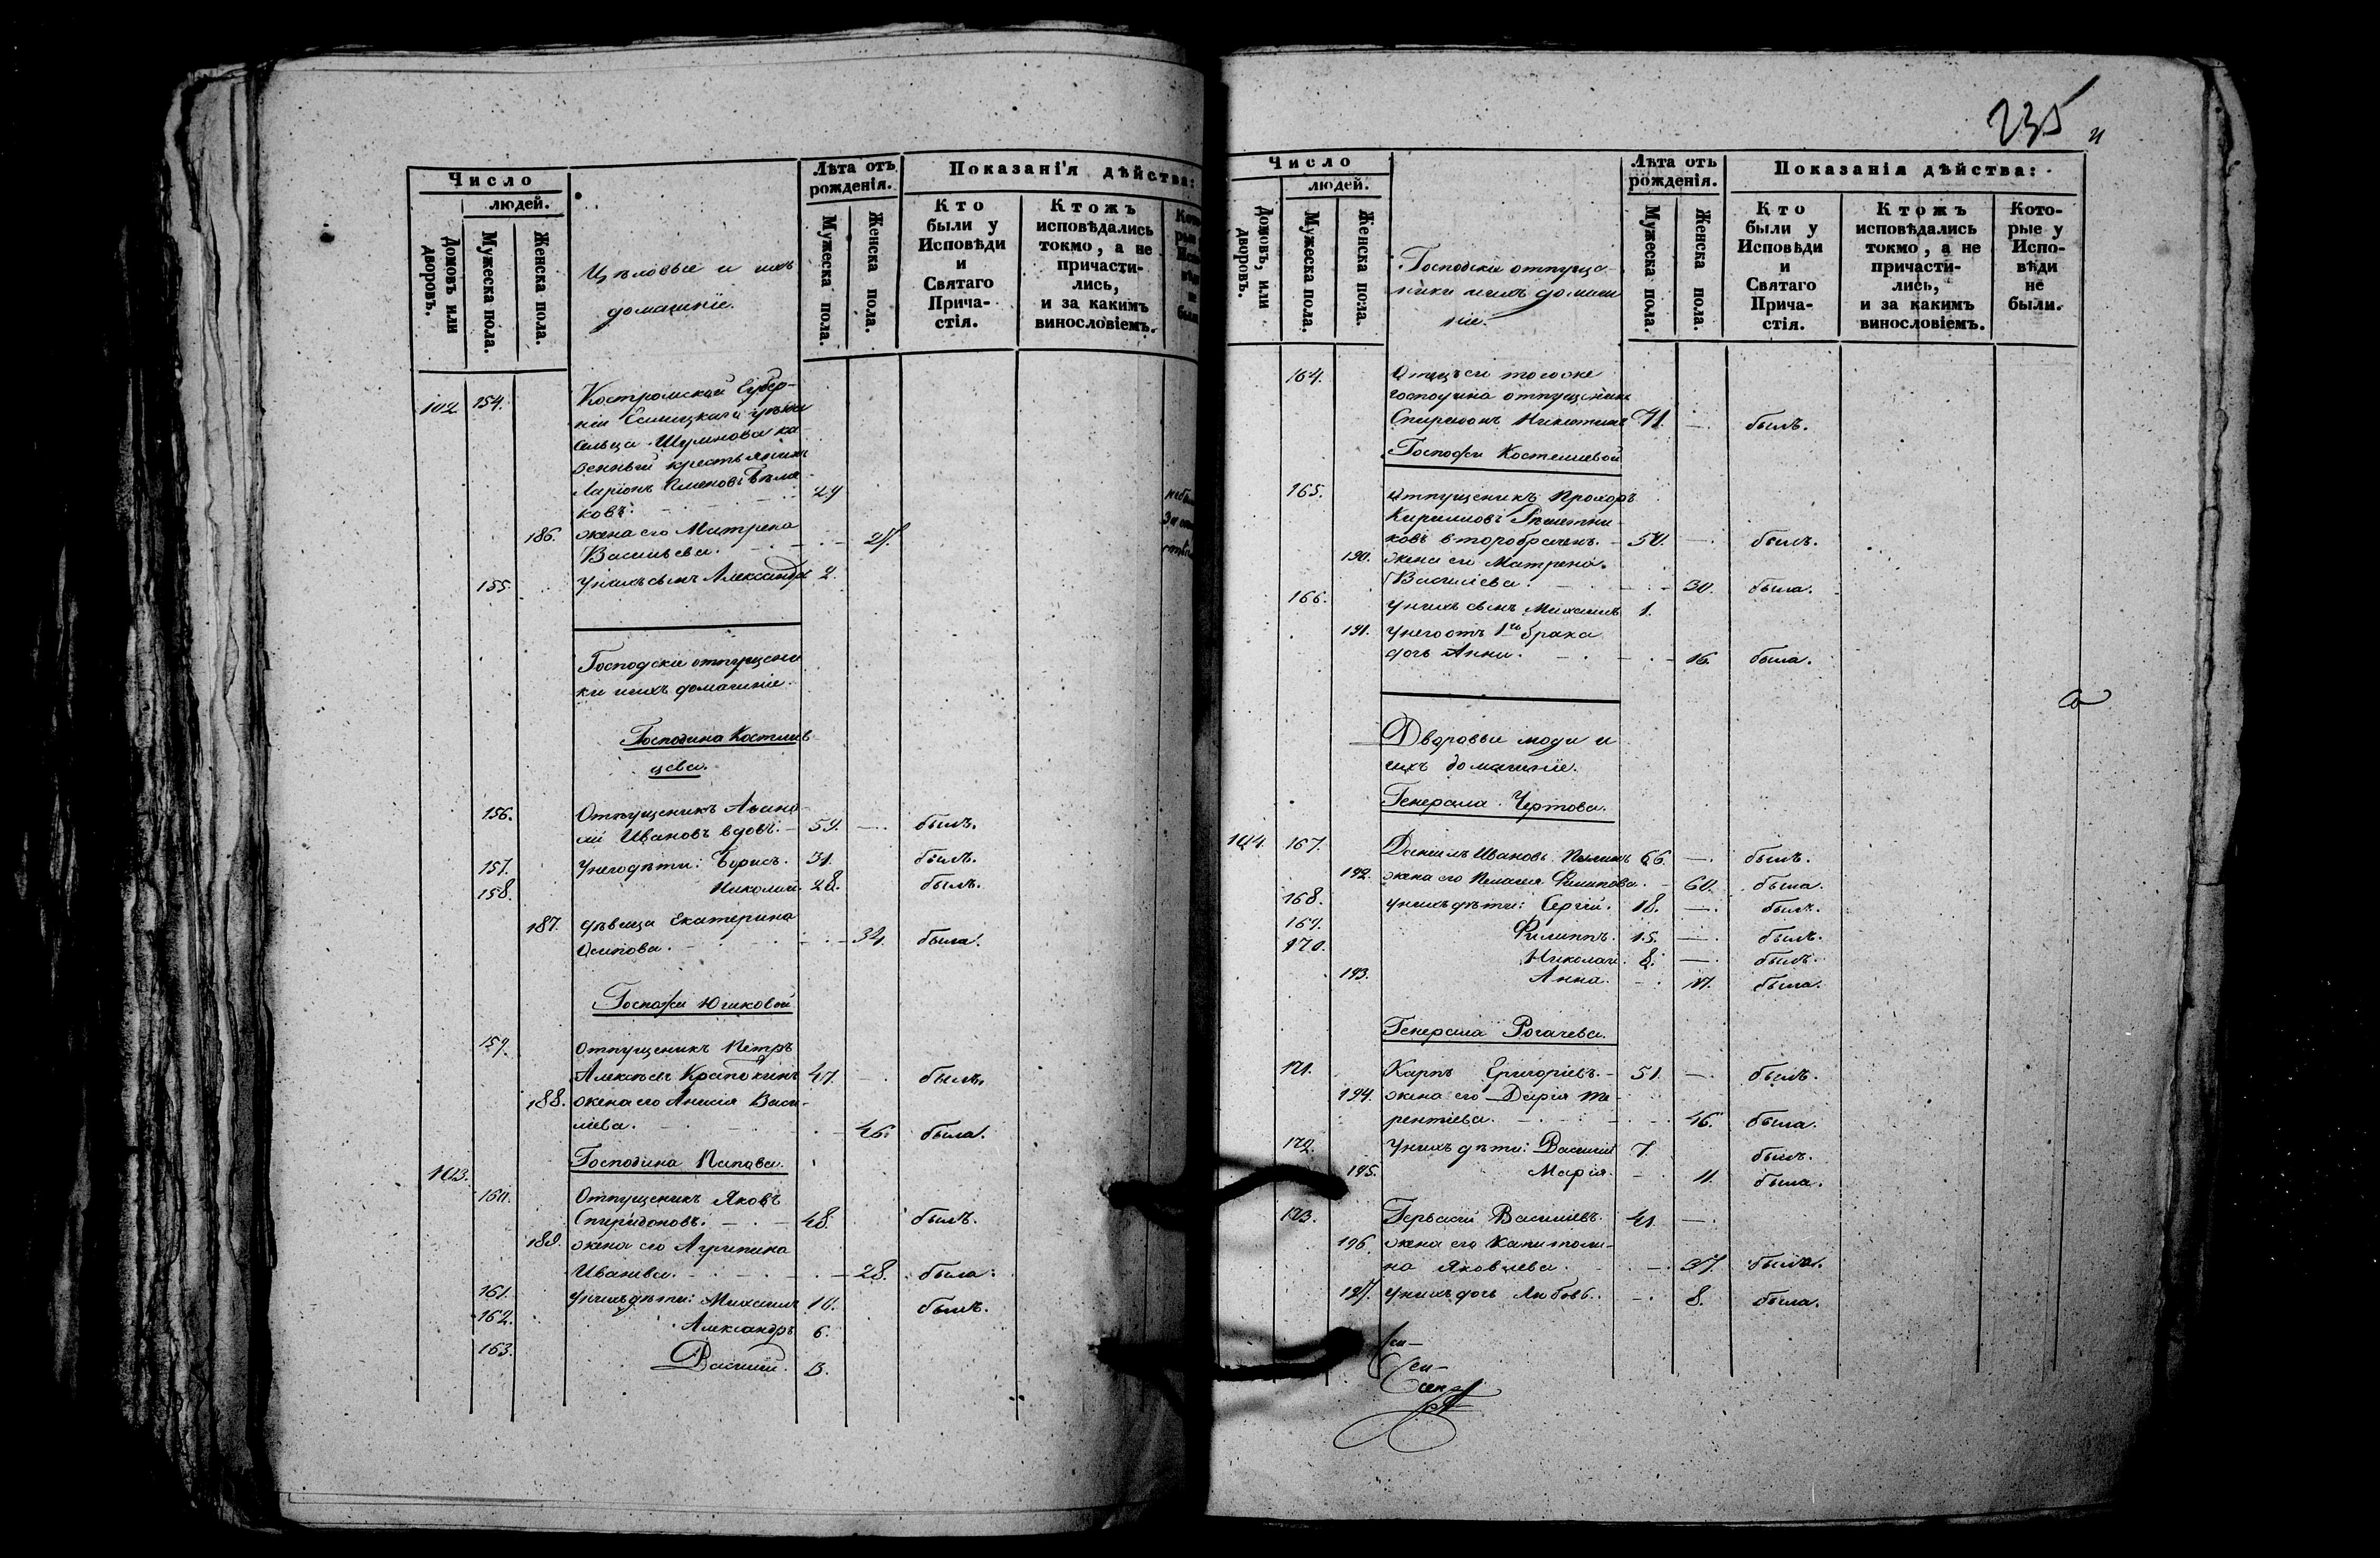 Число
людей.
Домовъ или дворовъ.
Мужеска пола.
Женска пола.
домашніе.
Лѣта отъ рожденія.
Мужеска пола.
Женска пола.
Показанія дѣйства:
Кто были у Исповѣди и Святаго Прича-стія.
Ктожъ исповѣдались токмо, а не причасти-лись, и за какимъ винословіемъ.
102. 154. Костромской Губер-
ніи
крестьянинъ
Ларіонъ
ковъ. 29
186. жена его Матрена
Васильева. 25.
155. у нихъ сынъ Александръ 2.
Господскіе отпущени
ки и ихъ домашніе.
Господина Костлив
цева.
156. Отпущеникъ
Ивановъ вдовъ. 59. былъ.
157. У него дѣти: Борисъ. 31. былъ.
158. Николай. 28. былъ.
187. дѣвица Екатерина
Осипова. 34. была.
Госпожи Юшковой
159. Отпущеникъ Петръ
Алексѣевъ 47. былъ.
188. жена его Анисія Васи-
льева. 46. была.
103. Господина Попова.
160. Отпущеникъ Яковъ
Спиридоновъ. 48. былъ.
189. жена его Агрипина
Иванова. 28. была.
161. У нихъ дѣти: Михаилъ 10. былъ.
162. Александръ 6.
163. Василій. 3.
235
Число
людей.
Домовъ, или дворовъ.
Мужеска пола.
Женска пола.
Господскіе отпуще-
ники и ихъ домаш
ніе.
Лѣта отъ рожденія.
Мужеска пола.
Женска пола.
Показанія дѣйства:
Кто были у Исповѣди и Святаго Прича-стія.
Ктожъ исповѣдались токмо, а не причасти-лись, и за какимъ винословіемъ.
Кото-рые у Испо-вѣди не были.
164. Отецъ его того же
господина отпущеникъ
Спиридонъ Никитинъ 71. былъ.
Госпожи
165. Отпущеникъ Прохоръ
Кириловъ Рѣшетни-
ковъ второбрачн. 50. былъ.
190. жена его Матрена
Васильева. 30. была.
166. у нихъ сынъ Михаилъ 1.
191. у него отъ 1го брака
дочь Анна. 16. была.
Дворовые люди и
ихъ домашніе.
Генерала Чертова.
104. 167. Даніилъ Ивановъ 66. былъ.
192. жена его Пелагея Филипова. 60. была.
168. у нихъ дѣти: Сергій. 18. былъ.
169. Филиппъ. 15. былъ.
170. Николай. 8. былъ.
193. Анна. была.
Генерала Рогачева.
171. Карпъ Григоріевъ. 51. былъ.
194. жена его Дарія Те-
рентіева. 46. была.
172. у нихъ дѣти: Василій 7. былъ.
195. Марія. 11. была.
173. Гервасій Василіевъ. 41.
196. жена его Капитоли-
на Яковлева. 37. была.
197. у нихъ дочь Любовь. 8. была.